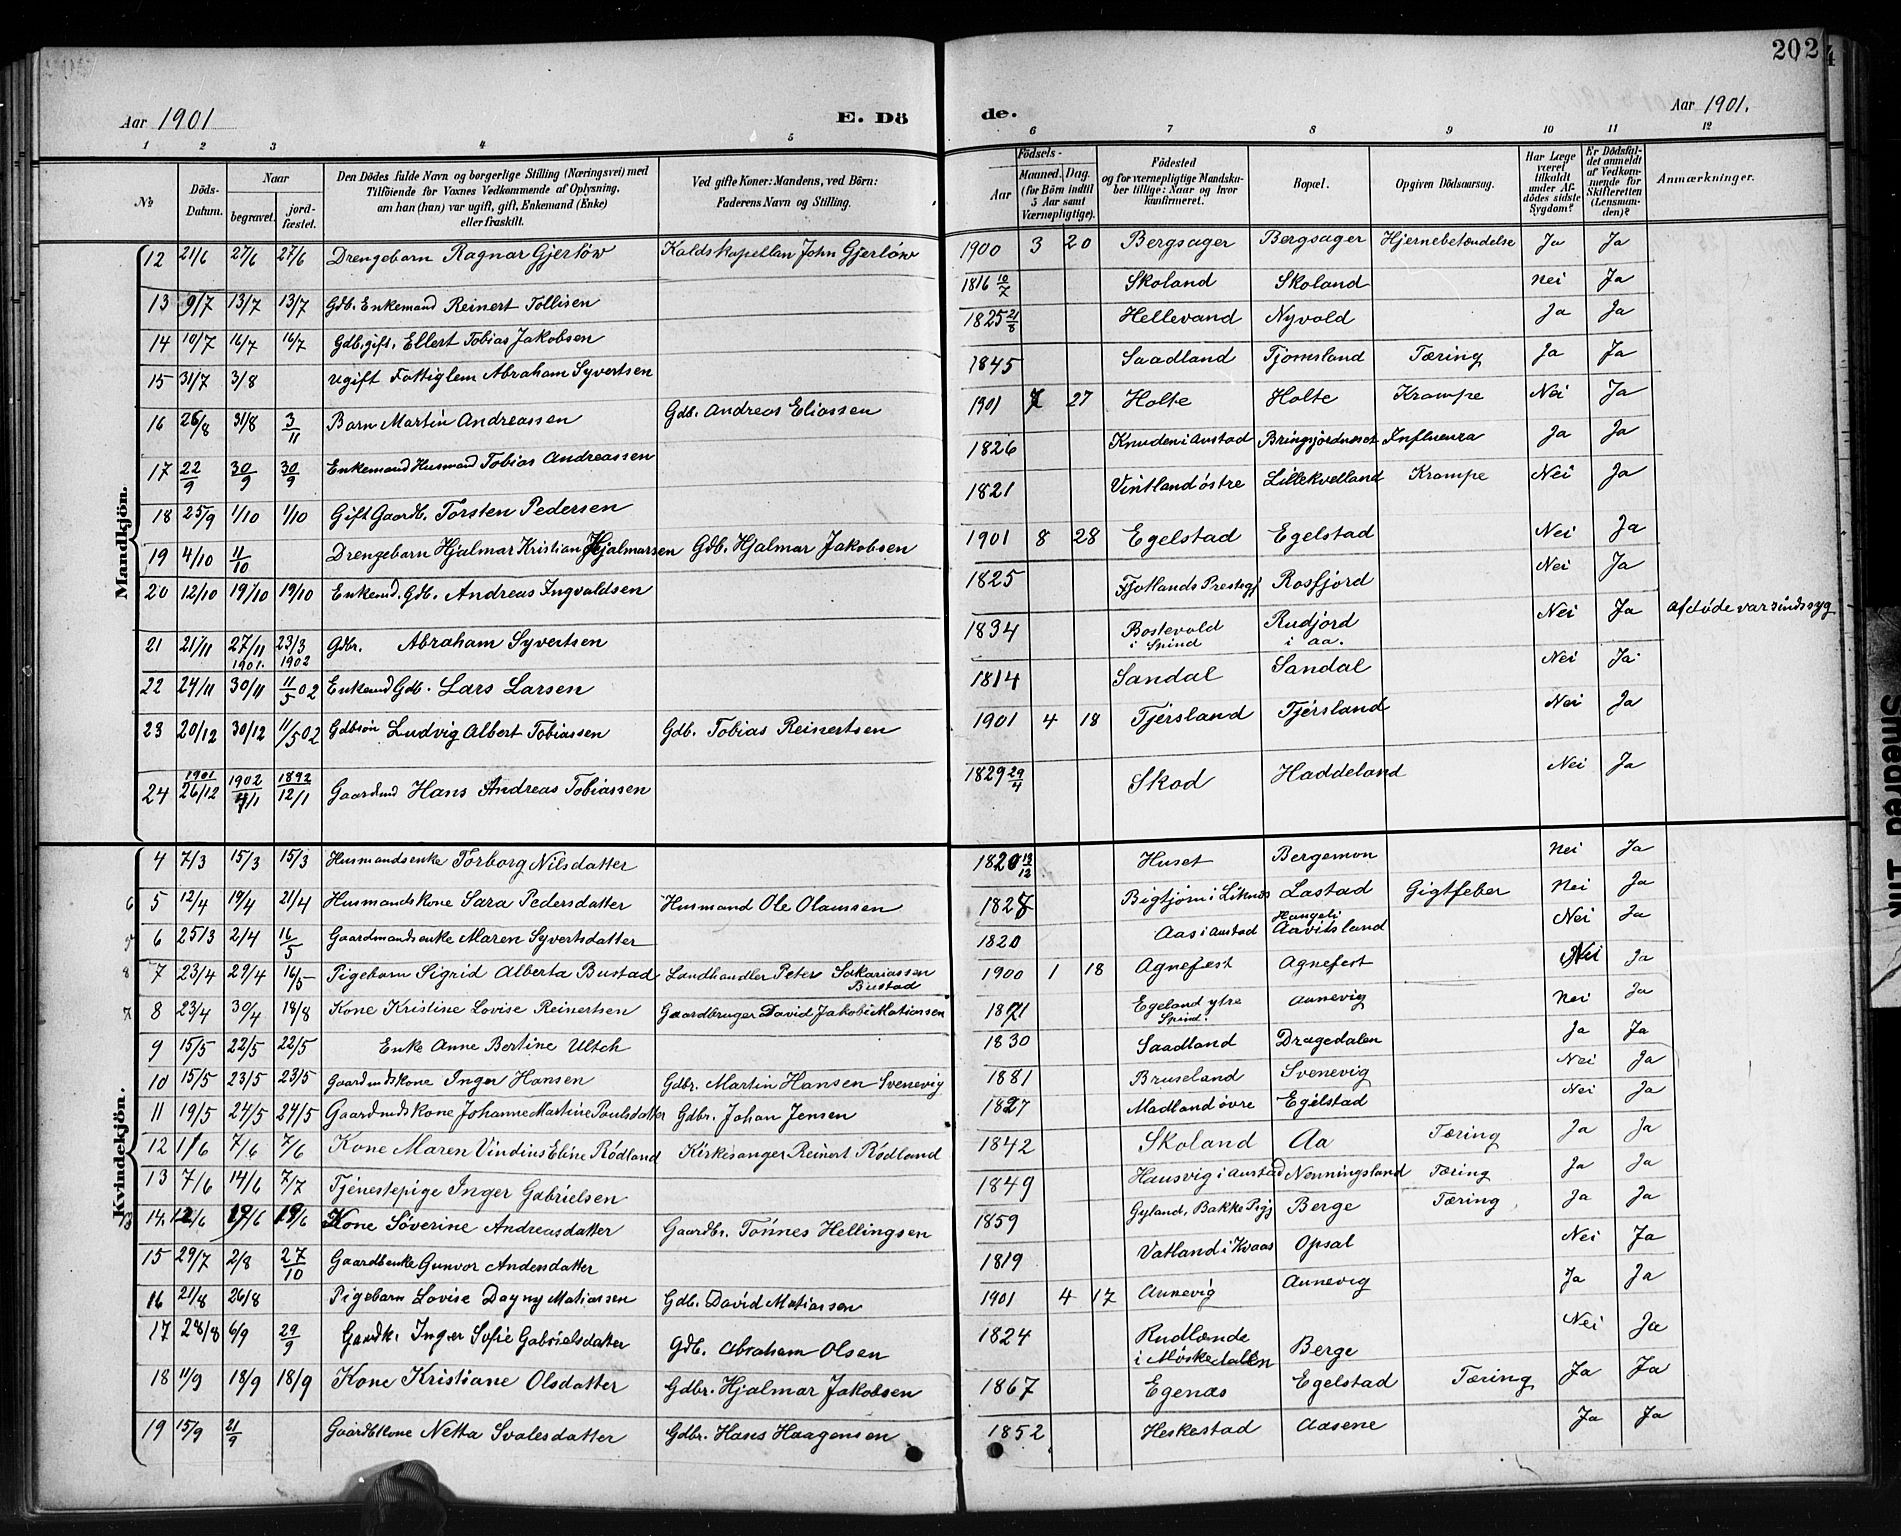 202
4
Aar 1901
E. Dö
de.
Aar 1901.
1 2 3 4 5 6 7 8 9 10 11 12
№ Döds-Datum. Naar begravet. jord-fæstet. Den Dödes fulde Navn og borgerlige Stilling (Næringsvei) med Tilföiende for Voxnes Vedkommende af Oplysning, om han (hun) var ugift, gift, Enkemand (Enke) eller fraskilt. Ved gifte Koner: Mandens, ved Börn: Faderens Navn og Stilling. Födsels- Aar Maaned. Dag. (for Börn indtil 5 Aar samt Værnepligtige). Födested og for værnepligtige Mandskaber tillige: Naar og hvor konfirmeret. Bopæl. Opgiven Dödsaarsag. Har Læge været tilkaldt under Afdödes sidste Sygdom? Er Dödsfaldet anmeldt af Vedkommende for Skifteretten (Lensmanden)? Anmærkninger.
Mandkjön.
12 21/6 27/6 27/6 Drengebarn Ragnar Gjerlöw Kaldskapellan John Gjerlöw 1900 3 20 Bergsager Bergsager Hjernebetændelse Ja Ja
13 9/7 13/7 13/7 Gdb. Enkemand Reinert Tollisen 1816 10/7 Skoland Skoland Nei Ja
14 10/7 16/7 16/7 Gdb. gift. Ellert Tobias Jakobsen 1825 21/8 Hellevand Nyvold Ja Ja
15 31/7 3/8 Ugift Fattiglem Abraham Syvertsen 1845 Saadland Tjomsland Tæring Ja Ja
16 26/8 31/8 3/11 Barn Martin Andreassen Gdb. Andreas Eliassen 1901 7 27 Holte Holte Krampe Nei Ja
17 22/9 30/9 30/9 Enkemand Husmand Tobias Andreassen 1826 Knuden i Austad Bringsjordneset Influenza Ja Ja
18 25/9 1/10 1/10 Gift Gaardb. Torsten Pedersen 1821 Vintland östre Lillekvelland Krampe Nei Ja
19 4/10 11/10 Drengebarn Hjalmar Kristian Hjalmarsen Gdb. Hjalmar Jakobsen 1901 8 28 Egelstad Egelstad Nei Ja
20 12/10 19/10 19/10 Enkemd. Gdb. Andreas Ingvaldsen 1825 Fjotlands Prestegj Rosfjord Nei Ja
21 21/11 27/11 1901. 23/3 1902 Gdbr. Abraham Syvertsen 1834 Bostevold i Spind Rudjord i Aa. Nei Ja Afdöde var sindssyg
22 24/11 30/11 11/5 02 Enkemd Gdb. Lars Larsen 1814 Sandal Sandal Nei Ja
23 20/12 30/12 11/5 02 Gdbsön Ludvig Albert Tobiassen Gdb. Tobias Reinertsen 1901 4 18 Tjersland Tjersland Nei Ja
24 1901 26/12 1902 4/1 1892 12/1 Gaardmd Hans Andreas Tobiassen 1829 29/4 Skod Haddeland Nei Ja
Kvindekjön.
4 7/3 15/3 15/3 Husmandsenke Torborg Nilsdatter 1820 Huset Bergemon Nei Ja
6 5 12/4 19/4 21/4 Husmandskone Sara Pedersdatter Husmand Ole Olaussen 1828 Bigtjörn i Liknes Lastad Gigtfeber Nei Ja
5 6 25/3 2/4 16/5 Gaardmandsenke Maren Syvertsdatter 1820 Aas i Austad Haugeli Aavitsland Nei Ja
8 7 23/4 29/4 16/5 Pigebarn Sigrid Alberta Bustad Landhandler Peter Sakariassen Bustad 1900 1 18 Agnefest Agnefest Nei Ja
7 8 23/4 30/4 18/8 Kone Kristine Lovise Reinertsen Gaardbruger David Jakobi Matiassen 1871 Egeland ytre Spind. Aunevig Nei Ja
9 15/5 22/5 22/5 Enke Anne Bertine Ultch 1830 Saadland Dragedalen Ja Ja
10 15/5 23/5 23/5 Gaardmdskone Inger Hansen Gdbr. Martin Hansen Svenevig 1881 Bruseland Svenevig Nei Ja
11 19/5 24/5 24/5 Gaardmdskone Johanne Martine Poulsdatter Gdbr. Johan Jensen 1827 Madland övre Egelstad Nei Ja
12 1/6 7/6 7/6 Kone Maren Vindius Eline Rödland Kirkesanger Reinert Rödland 1842 Skoland Aa Tæring Ja Ja
13 7/6 14/6 7/7 Tjenestepige Inger Gabrielsen 1849 Hausvig i Austad Nenningsland Tæring Ja Ja
13 14. 12/6 19/6 19/6 Kone Söverine Andreasdatter Gaardbr. Tönnes Hellingsen 1859 Gyland, Bakke Pgj Berge Tæring Ja Ja
15 29/7 2/8 27/10 Gaardbenke Gunvor Andersdatter 1819 Vatland i Kvaas Opsal Nei Ja
16 21/8 26/8 Pigebarn Lovise Dagny Matiassen Gdb. David Matiassen 1901 4 17 Aunevig Aunevig Ja Ja
17 28/8 6/9 29/9 Gaardk. Inger Sofie Gabrielsdatter Gdb. Abraham Olsen 1824 Rudlænde i Möskedalen Berge Nei Ja
18 11/9 18/9 18/9 Kone Kristiane Olsdatter Gdbr. Hjalmar Jakobsen 1867 Egenæs Egelstad Tæring Ja Ja
19 15/9 21/9 Gaardbkone Netta Svalesdatter Gdbr. Hans Haagensen 1852 Heskestad Aasene Ja Ja